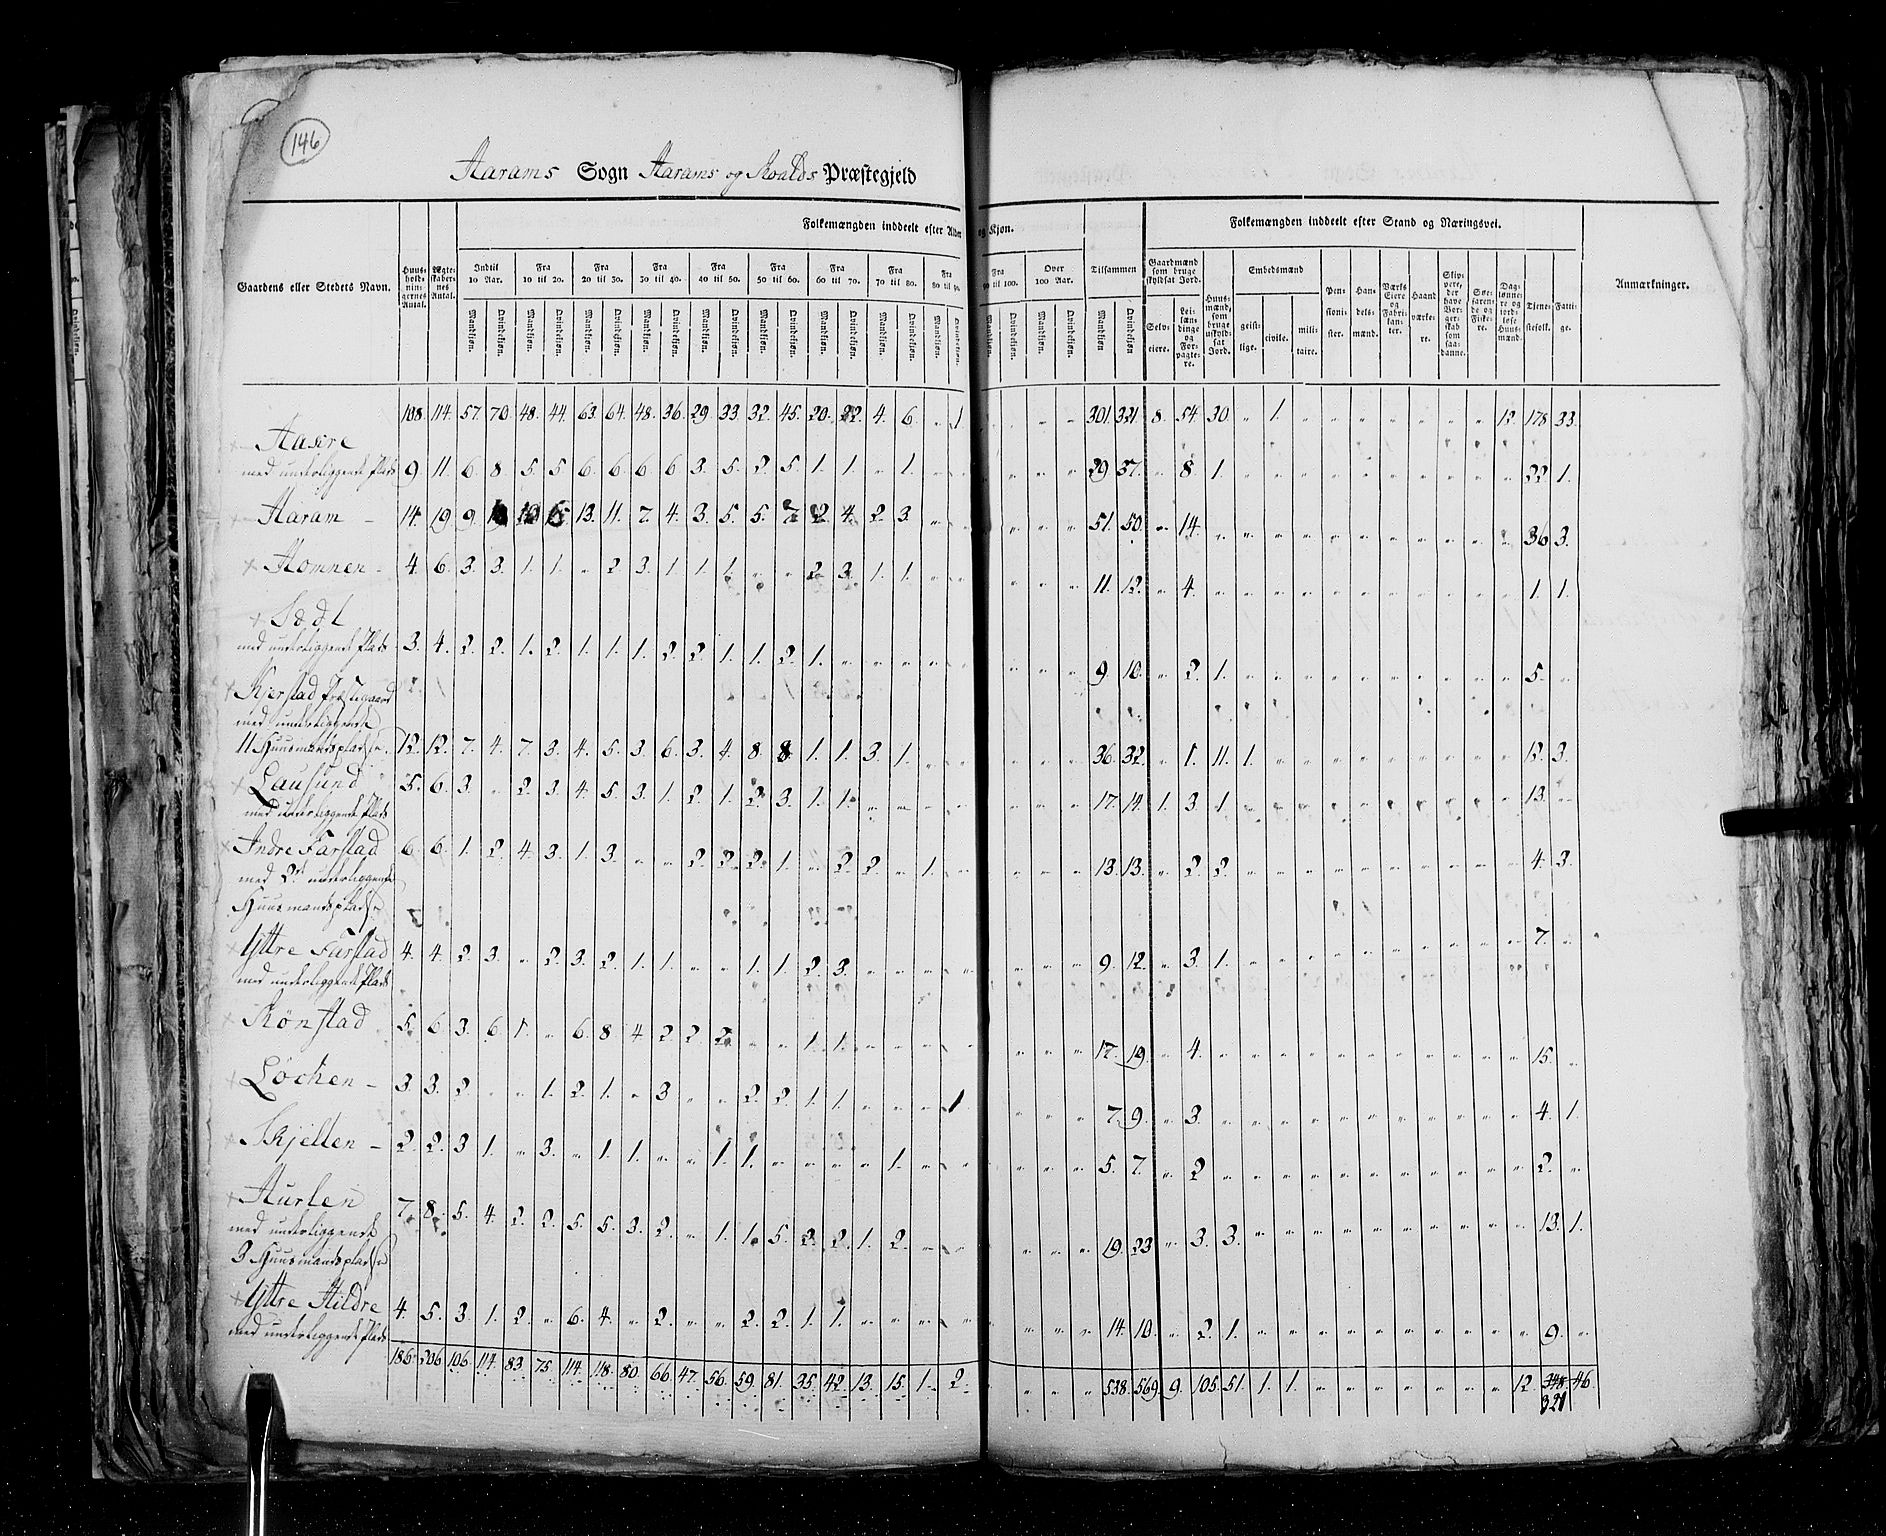 146
Aarams Sogn Aarams og Roalds Præstegjeld
Folkemængden inddeelt efter Alder og Kjøn.
Folkemængden inddeelt efter Stand og Næringsvei.
Gaardens eller Stedets Navn.
Huus-holdnin-gernes Antal.
Ægte-skaber-nes Antal.
Indtil 10 Aar.
Fra 10 til 20.
Fra 20 til 30.
Fra 30 til 40.
Fra 40 til 50.
Fra 50 til 60.
Fra 60 til 70.
Fra 70 til 80.
Fra 80 til 90.
Fra 90 til 100.
Over 100 Aar.
Tilsammen
Mandkjøn. Qvindekjøn.
Gaardmænd som bruge skyldsat Jord.
Selv-eiere.
Lei-læn-dinge og For-pagte-re.
Huus-mænd, som bruge uskyld-sat Jord.
Embedsmænd
geist-lige.
civile.
mili-taire.
Pen-sioni-ster.
Han-dels-mænd.
Værks Eiere og Fabri-kan-ter.
Haand-værke-re.
Skip-pere, der have Bor-ger-skab som saa-danne.
Søe-faren-de og Fiske-re.
Dag-lønne-re og jord-løse Huus-mænd.
Tjene-stefolk.
Fatti-ge.
Anmærkninger.
108. 114. 57. 70. 48. 44. 63. 64. 48. 36. 29. 33. 32. 45. 20. 22. 4. 6. " 1. " " " " 301. 321. 8. 54. 30. " 1. " " " " " " " 12. 178. 33.
Aasere
med underliggende Plads 9. 11. 6. 8. 5. 5. 6. 6. 6. 6. 3. 5. 2. 5. 1. 1. " 1. " " " " " " 29. 37. " 8. 1. " " " " " " " " " " 22. 1.
Aaram – 14. 19. 9. 13. 11. 7. 4. 3. 5. 5. 7. 2. 4. 2. 3. " " " " " " 51. 50. " 14. " " " " " " " " " " " 36. 3.
Homnen – 4. 6. 3. 3. 1. 1. " 2. 3. 1. 1. 1. " " 2. 3. 1. 1. " " " " " " 11. 12. " 4. " " " " " " " " " " " 1. 1.
med underliggende Plads 3. 4. 2. 2. 1. 2. 1. 1. 1. 2. 2. 1. 1. 2. 1. " " " " " " " " " 9. 10. " 2. 1. " " " " " " " " " " 5. "
Kjerstad Præstegaard
med underliggende
11 Huusmandspladse 12. 12. 7. 4. 7. 3. 4. 5. 3. 6. 3. 4. 8. 8. 1. 1. 3. 1. " " " " " " 36. 32. " 1. 11. 1. " " " " " " " " " 12. 3.
Lausund 5. 6. 3. " 2. 3. 4. 5. 3. 1. 2. 1. 2. 3. 1. 1. " " " " " " " " 17. 14. 1. 3. 1. " " " " " " " " " " 13. "
med underliggende Plads
Indre Farstad 6. 6. 1. 2. 4. 3. 1. 3. " " 2. 2. 2. 1. " 2. 2. " 1. " " " " " 13. 13. " 2. 2. " " " " " " " " " " 4. 3.
med 2de underliggende
Huusmandspladse
Yttre Farstad 4. 4. 2. 3. " 2. 3. 2. 1. 1. " " 1. 1. 2. 3. " " " " " " " " 9. 12. " 3. 1. " " " " " " " " " " 7. "
med underliggende Plads
Rønstad 5. 6. 3. 6. 1. " 6. 8. 4. 2. 2. 2. " " 1. 1. " " " " " " " " 17. 19. " 4. " " " " " " " " " " " 15. "
Løchen – 3. 3. 2. " " 1. 2. 1. " 3. " " 2. 2. 1. 1. " " " 1. " " " " 7. 9. " 3. " " " " " " " " " " " 4. 1.
Skjelten – 2. 2. 3. 1. " 3. " 1. 1. " " 1. 1. " " " " 1. " " " " " " 5. 7. " 2. " " " " " " " " " " " 2. "
Aurlen 7. 8. 5. 4. 2. 2. 5. 5. 3. 2. " 1. 1. 5. 2. 2. 1. 2. " " " " " " 19. 23. " 3. 3. " " " " " " " " " " 13. 1.
med underliggende
3 Huusmandspladse
Yttre Hildre 4. 5. 3. 1. 2. " 6. 4. " 2. " " 2. 2. 1. 1. " " " " " " " " 14. 10. " 2. 1. " " " " " " " " " " 9. "
med underliggende Plads
186. 206. 106. 114. 83. 75. 114. 118. 80. 66. 47. 56. 59. 81. 35. 42. 13. 15. 1. 2. " " " " 538. 569. 9. 105. 51. 1. 1. " " " " " " " 12. 46.
321